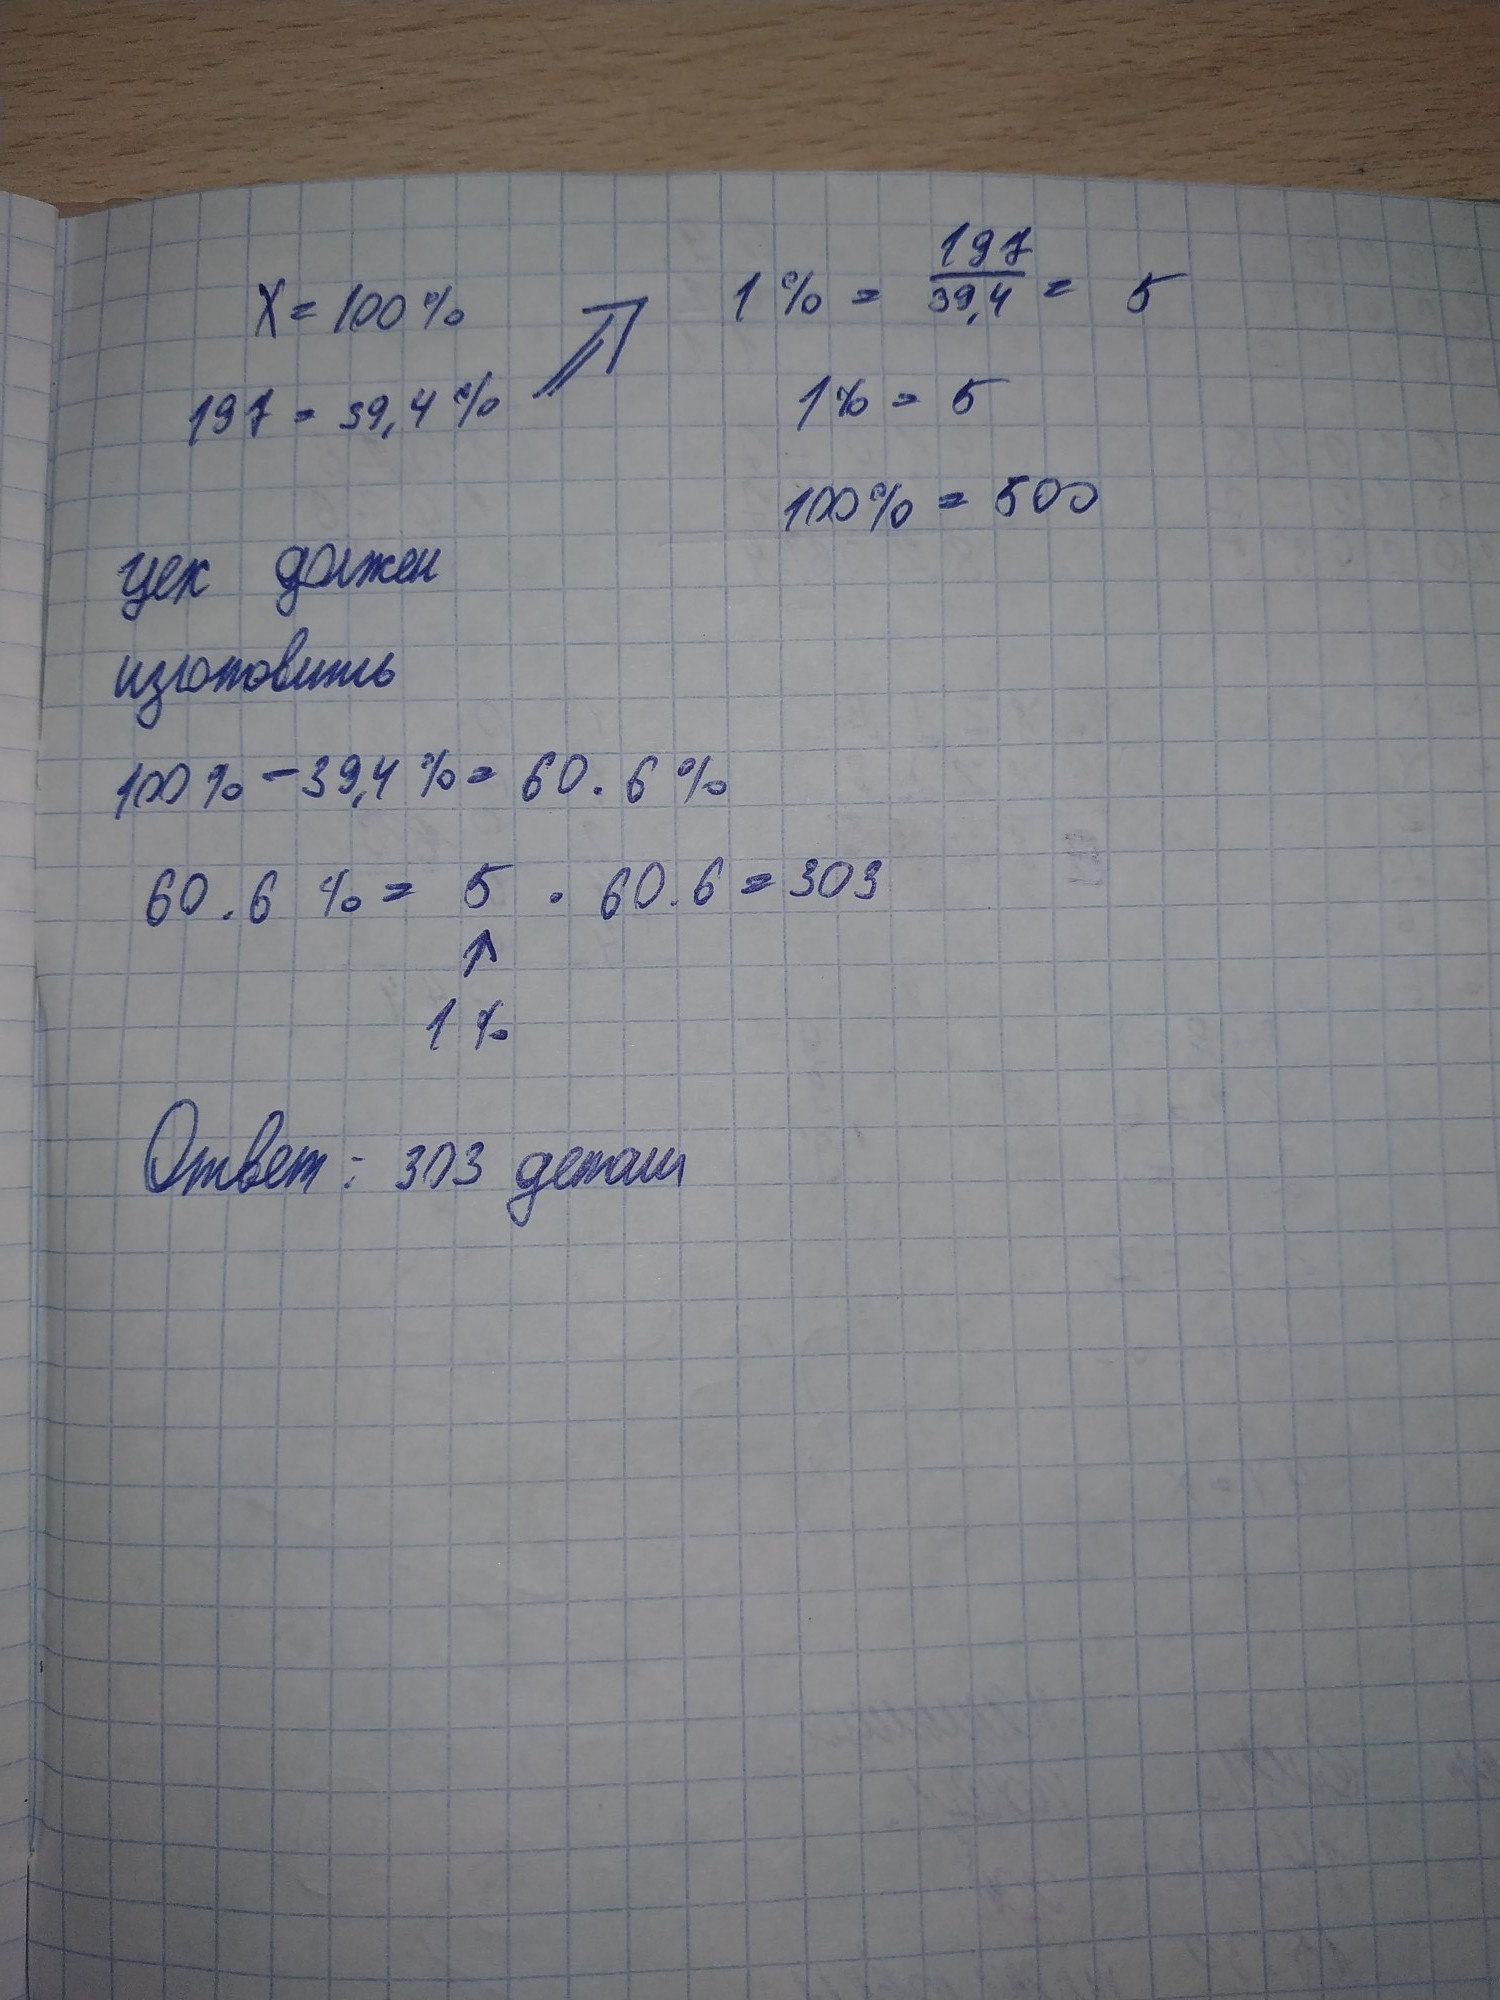 X = 100%
197 = 39,4%
1% = 197/39,4 = 5
1% = 5
100% = 500
цех должен
изготовить
100% - 39,4% = 60.6%
60.6 % = 5 . 60.6 = 303
↑
1%
Ответ: 303 детали